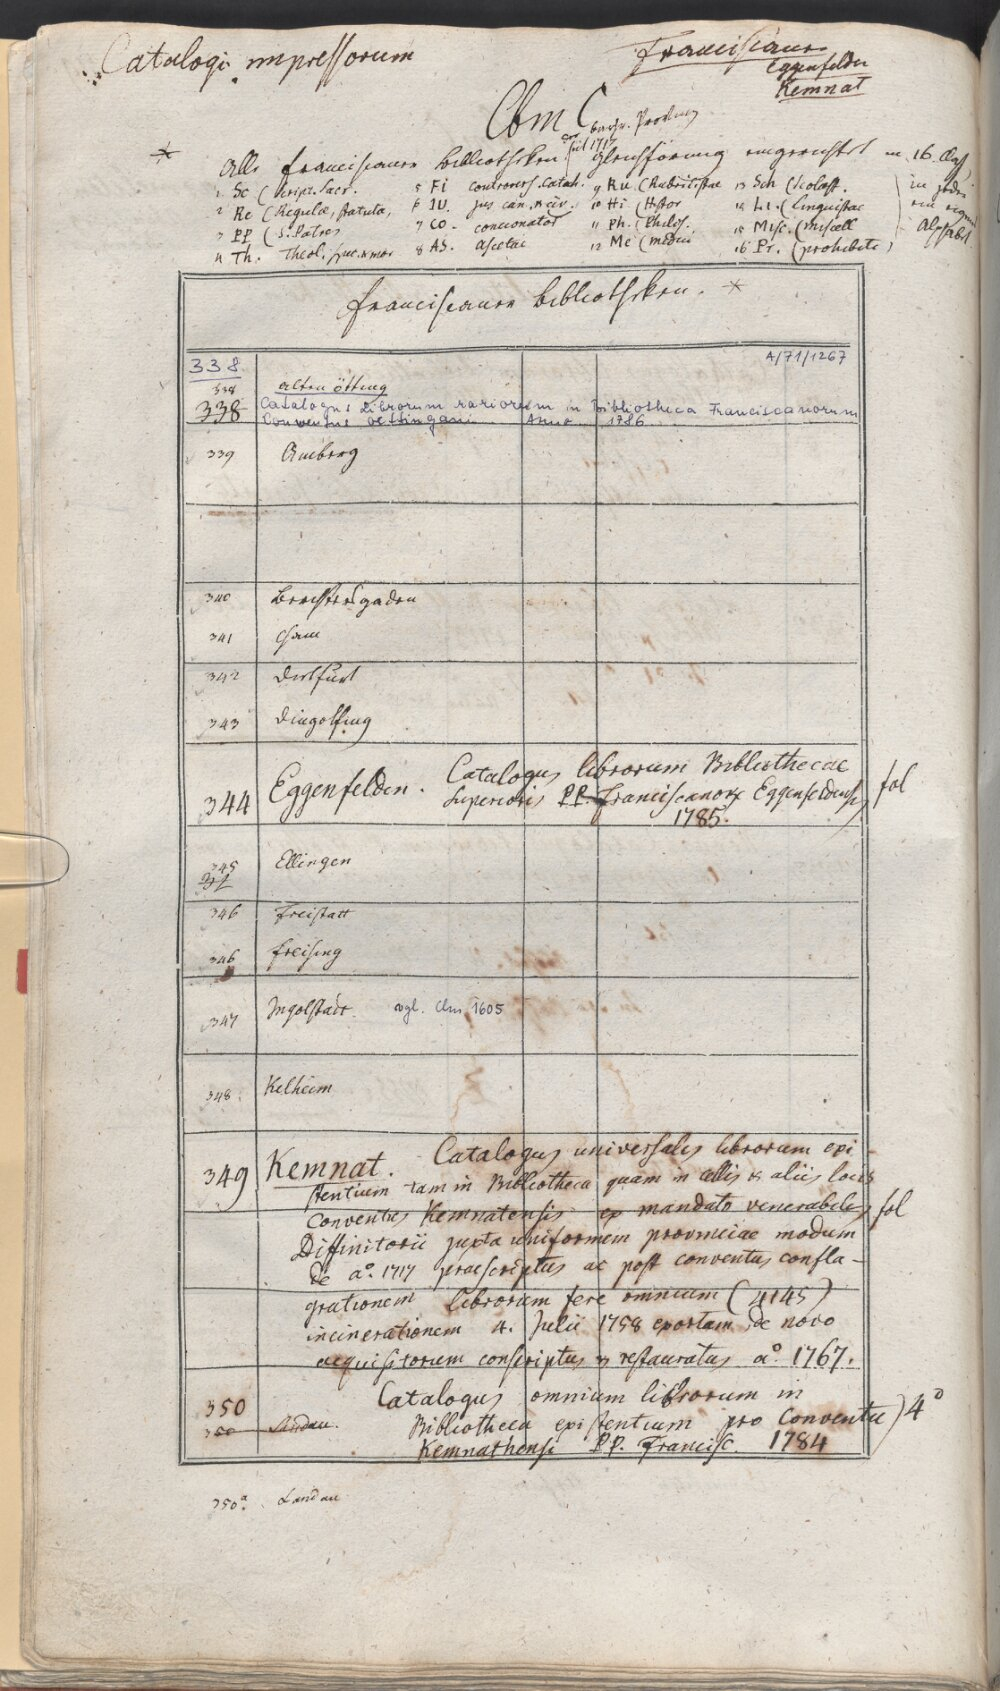 Catalogi impressorum
Franciscaner
Eggenfelden
Kemnat
Cbm C bayr. Provinz
seit 1717
* Alle franciscaner bibliotheken gleichförmig eingerichtet in 16 Class,
1 Sc (script. sacr. 5 Fi controvers. Catech. 9 Ru (Rubricistae 13 Sch (scolast. in jeder
2 Re (Regulae, statuta, 6 IU. jus can. & civ. 10 Hi (Histor 14 Li. (Linguistae ein eigenes
3 PP (S. Patres 7 Co. concionator 11 Ph. (Philos. 15 Misc. (miscell Alphabet
4 Th. Theol. spec. & mor 8 AS. ascetae 12 Me (medici 16 Pr. (prohibiti)
franciscaner bibliotheken. *
338 A/71/1267
338 alten ötting
338 Catalogus Librorum rariorum in Bibliotheca Franciscanorum
Conventus Oettingani Anno 1786
339 Amberg
340 berchtesgaden
341 Cham
342 dietfurt
343 dingolfing
Catalogus librorum Bibliothecae
344 Eggenfelden. Superioris PP. Franciscanor. Eggenfeldensis fol
1785.
345 Ellingen
346 Freistatt
346 freising
347 Ingolstadt vgl. Clm 1605
348 Kelheim
349 Kemnat. Catalogus universalis librorum exi-
stentium tam in Bibliotheca quam in cellis & aliis locis
Conventus Kemnatensis ex mandato venerabilis fol
Diffinitorii juxta uniformem provinciae modum
de ao. 1717 praescriptus ac post conventus confla-
grationem librorum fere omnium (4145)
incinerationem 4. Julii 1758 exortam, de novo
acquisitorum conscriptus & restauratus ao. 1767.
350 Catalogus omnium librorum in
350 Landau. Bibliotheca existentium pro Conventu 4o
Kemnathensi PP. Francisc. 1784
350a. Landau